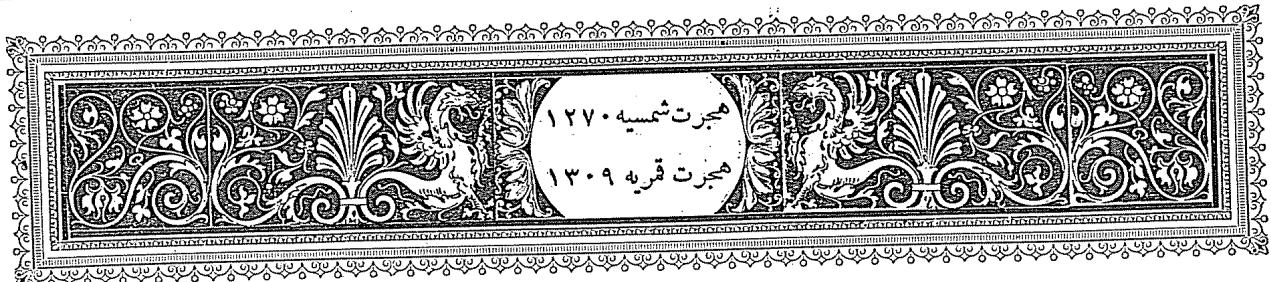 هجرت شمسيه ١٢٧٠
هجرت قمريه ١٣٠٩